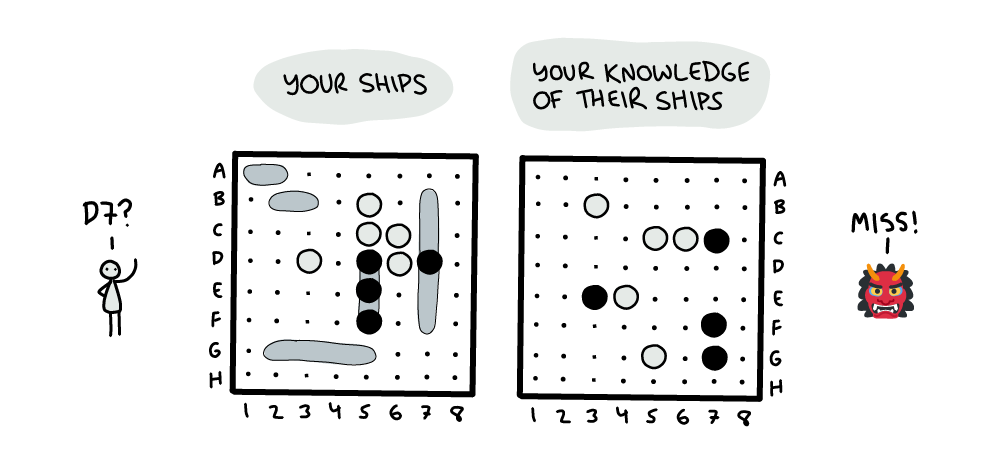 YOUR SHIPS
YOUR KNOWLEDGE
OF THEIR SHIPS
D7?
MISS!
A
B
C
D
E
F
G
H
1 2 3 4 5 6 7 8
A
B
C
D
E
F
G
H
1 2 3 4 5 6 7 8